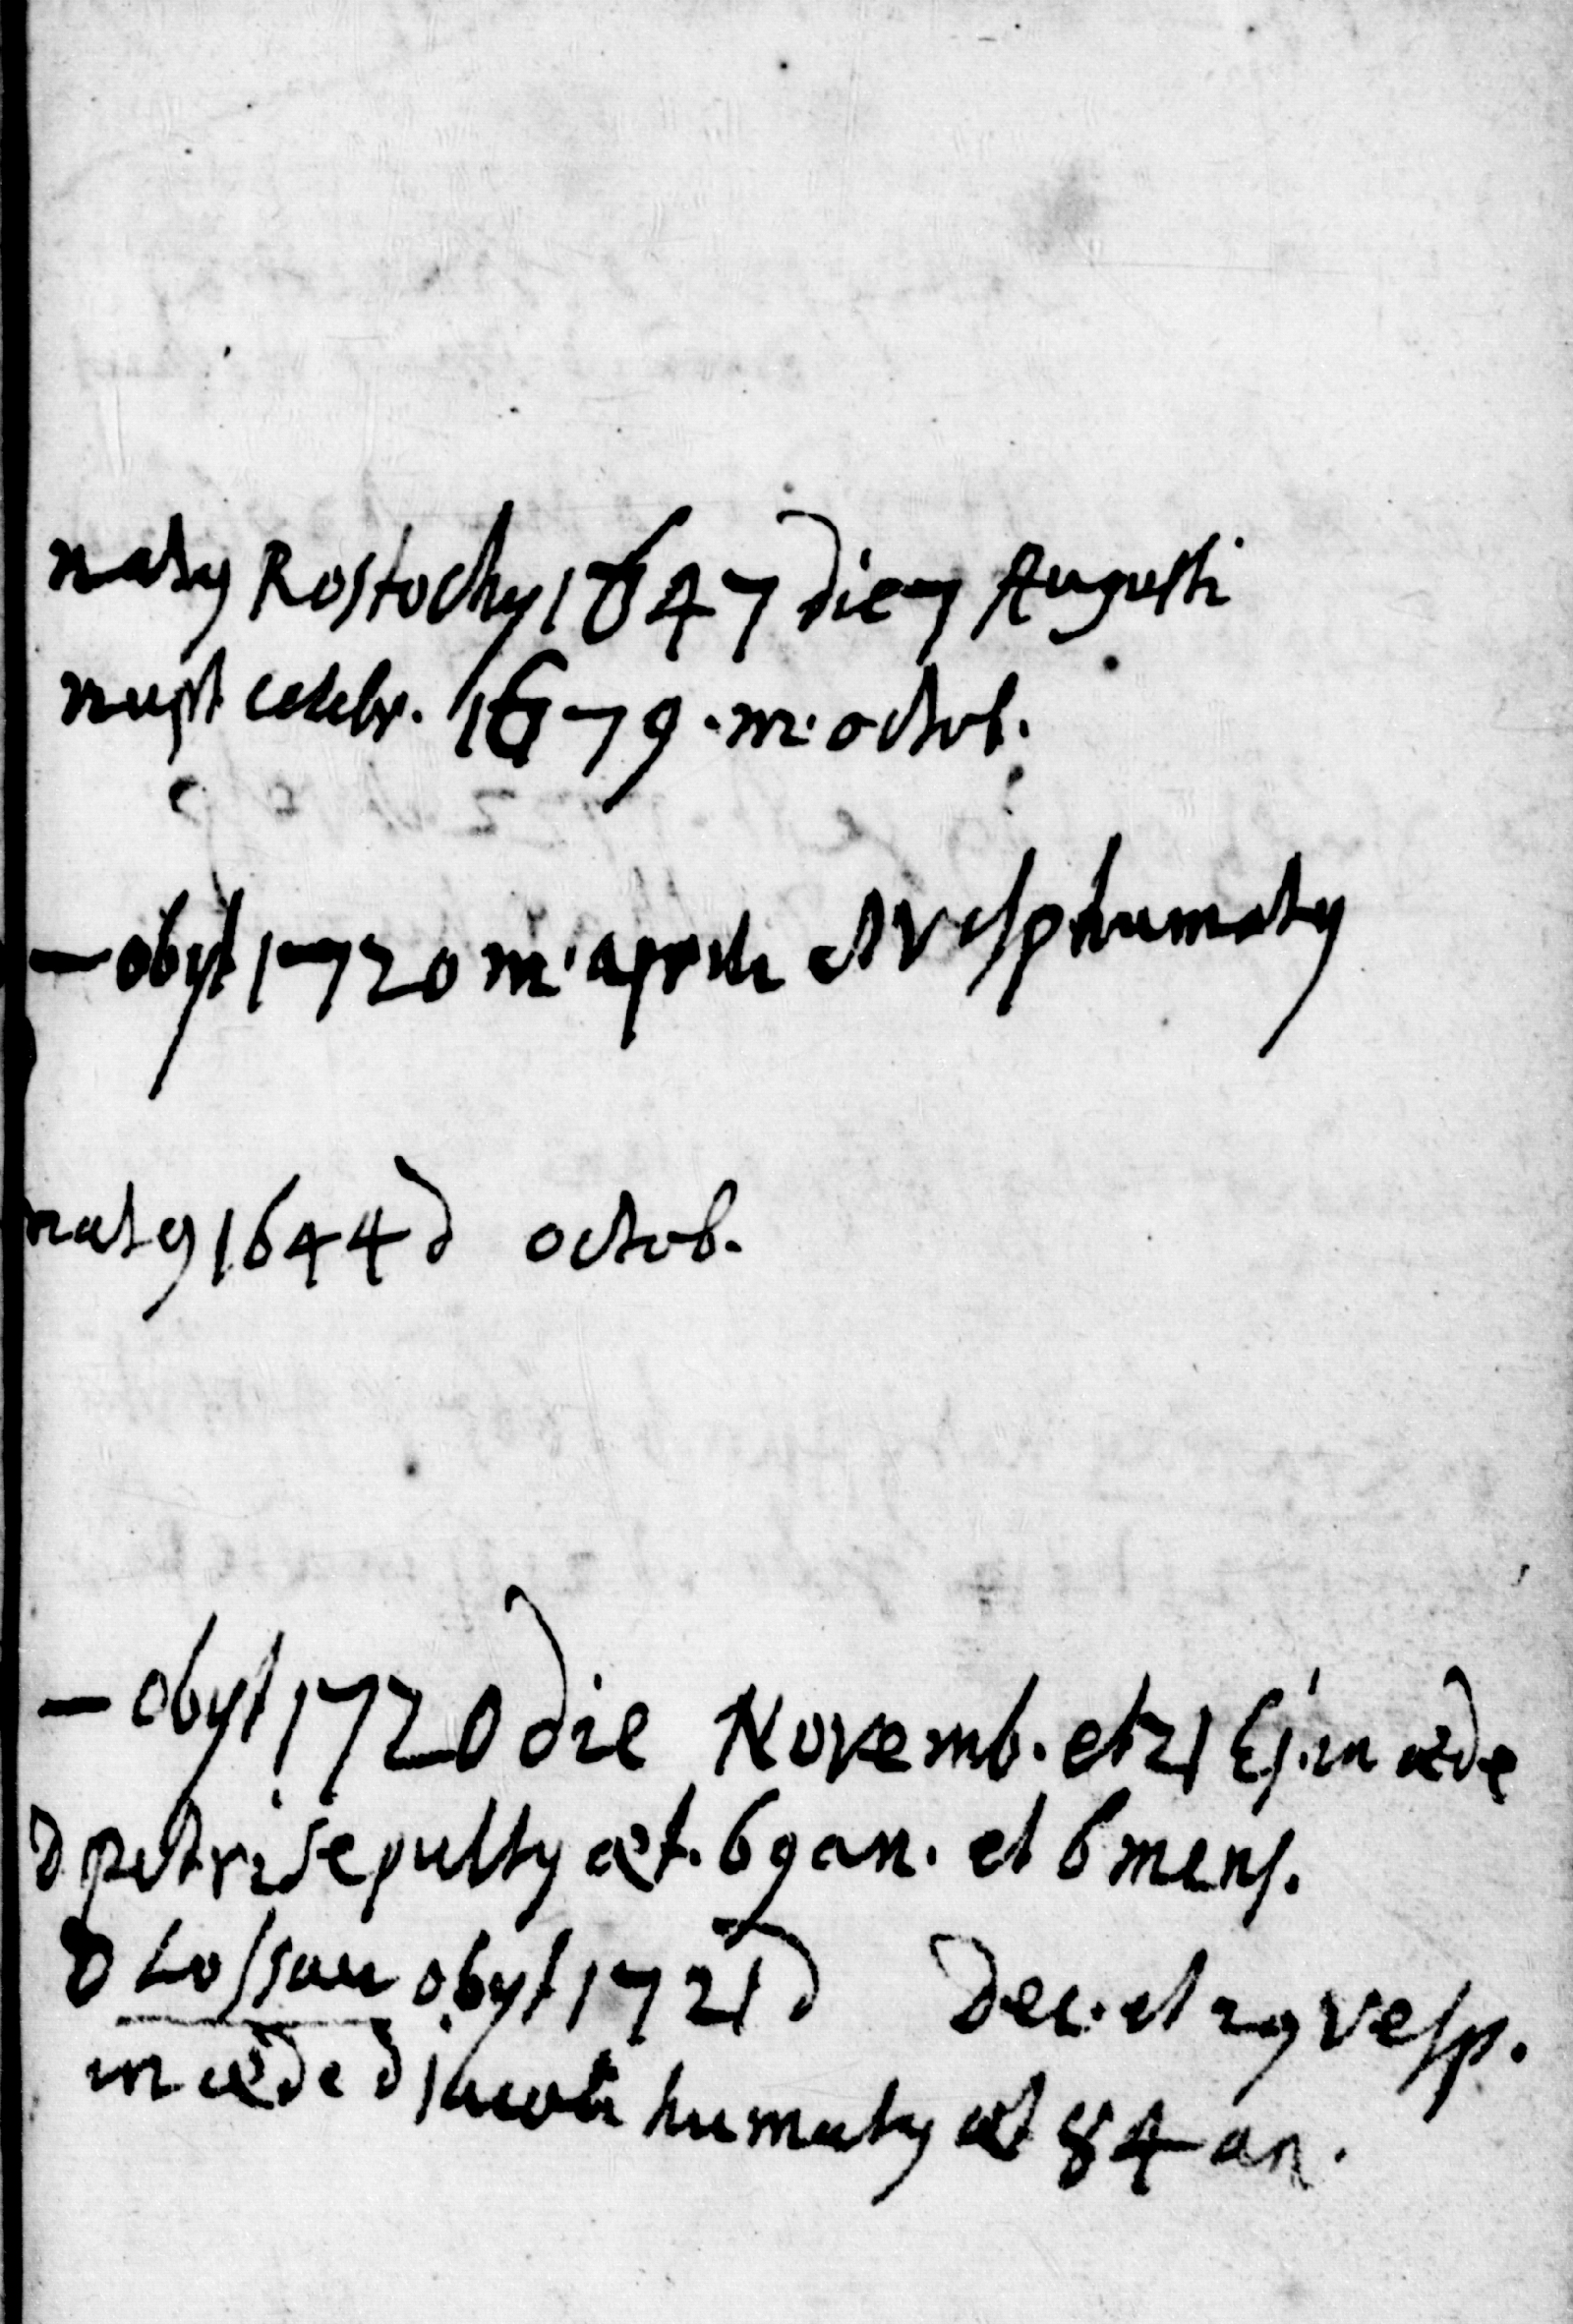 natꝰ Rostochy 1647 die 7 Augusti
nupt celebr. 1679. m. octob.
— obyt 1720 m. aprili et vesp humatꝰ
natꝰ 1644 d octob.
— obyt 1720 die Novemb. et 21 Ej. in æde
D petri sepultꝰ æt. 69 an. et 6 mens.
D Lossau obyt 1721 d Dec. et 29 vesp.
in æde D Jacobi humatꝰ æt 84 an.